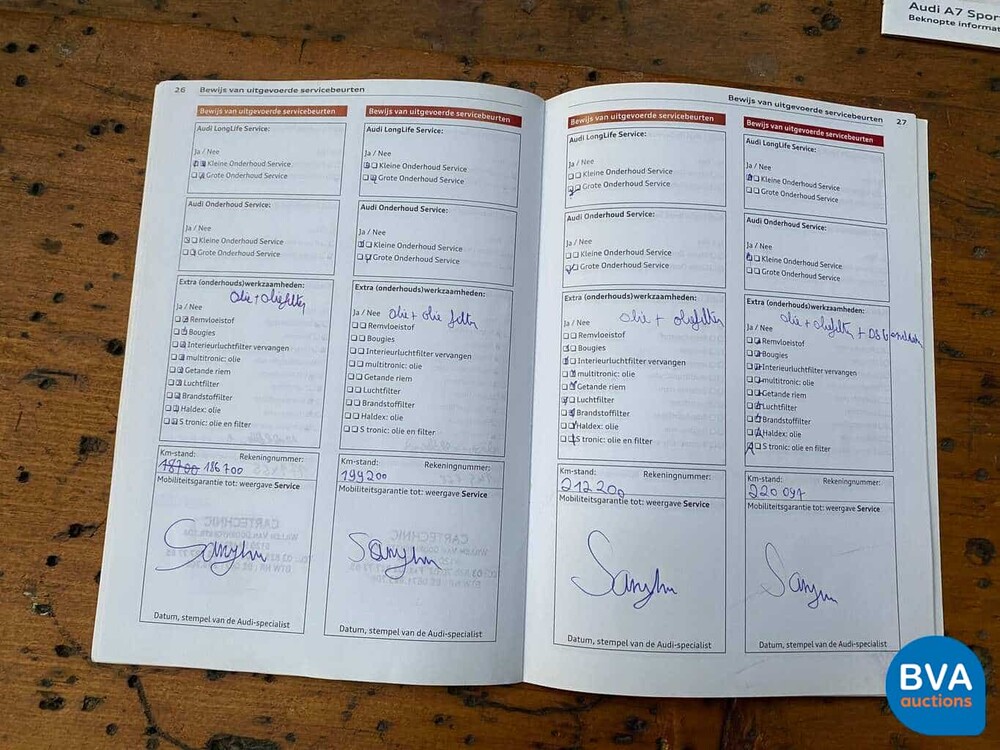 Audi A7 Spor
Beknopte informat
26 Bewijs van uitgevoerde servicebeurten
Bewijs van uitgevoerde servicebeurten
Audi LongLife Service:
Ja / Nee
Kleine Onderhoud Service
Grote Onderhoud Service
Audi Onderhoud Service:
Ja / Nee
Kleine Onderhoud Service
Grote Onderhoud Service
Extra (onderhouds)werkzaamheden:
olie + oliefilter
Ja / Nee
Remvloeistof
Bougies
Interieurluchtfilter vervangen
multitronic: olie
Getande riem
Luchtfilter
Brandstoffilter
Haldex: olie
S tronic: olie en filter
Km-stand: Rekeningnummer:
18700 186700
Mobiliteitsgarantie tot: weergave Service
Datum, stempel van de Audi-specialist
Bewijs van uitgevoerde servicebeurten
Audi LongLife Service:
Ja / Nee
Kleine Onderhoud Service
Grote Onderhoud Service
Audi Onderhoud Service:
Ja / Nee
Kleine Onderhoud Service
Grote Onderhoud Service
Extra (onderhouds)werkzaamheden:
Ja / Nee olie + olie filter
Remvloeistof
Bougies
Interieurluchtfilter vervangen
multitronic: olie
Getande riem
Luchtfilter
Brandstoffilter
Haldex: olie
S tronic: olie en filter
Km-stand: Rekeningnummer:
199200
Mobiliteitsgarantie tot: weergave Service
Datum, stempel van de Audi-specialist
Bewijs van uitgevoerde servicebeurten 27
Bewijs van uitgevoerde servicebeurten
Audi LongLife Service:
Ja / Nee
Kleine Onderhoud Service
Grote Onderhoud Service
Audi Onderhoud Service:
Ja / Nee
Kleine Onderhoud Service
Grote Onderhoud Service
Extra (onderhouds)werkzaamheden:
Ja / Nee olie + oliefilter
Remvloeistof
Bougies
Interieurluchtfilter vervangen
multitronic: olie
Getande riem
Luchtfilter
Brandstoffilter
Haldex: olie
S tronic: olie en filter
Km-stand: Rekeningnummer:
212200
Mobiliteitsgarantie tot: weergave Service
Datum, stempel van de Audi-specialist
Bewijs van uitgevoerde servicebeurten
Audi LongLife Service:
Ja / Nee
Kleine Onderhoud Service
Grote Onderhoud Service
Audi Onderhoud Service:
Ja / Nee
Kleine Onderhoud Service
Grote Onderhoud Service
Extra (onderhouds)werkzaamheden:
Ja / Nee olie + oliefilter +
Remvloeistof
Bougies
Interieurluchtfilter vervangen
multitronic: olie
Getande riem
Luchtfilter
Brandstoffilter
Haldex: olie
S tronic: olie en filter
Km-stand: Rekeningnummer:
Mobiliteitsgarantie tot: weergave Service
Datum, stempel van de Audi-specialist
BVA
auctions